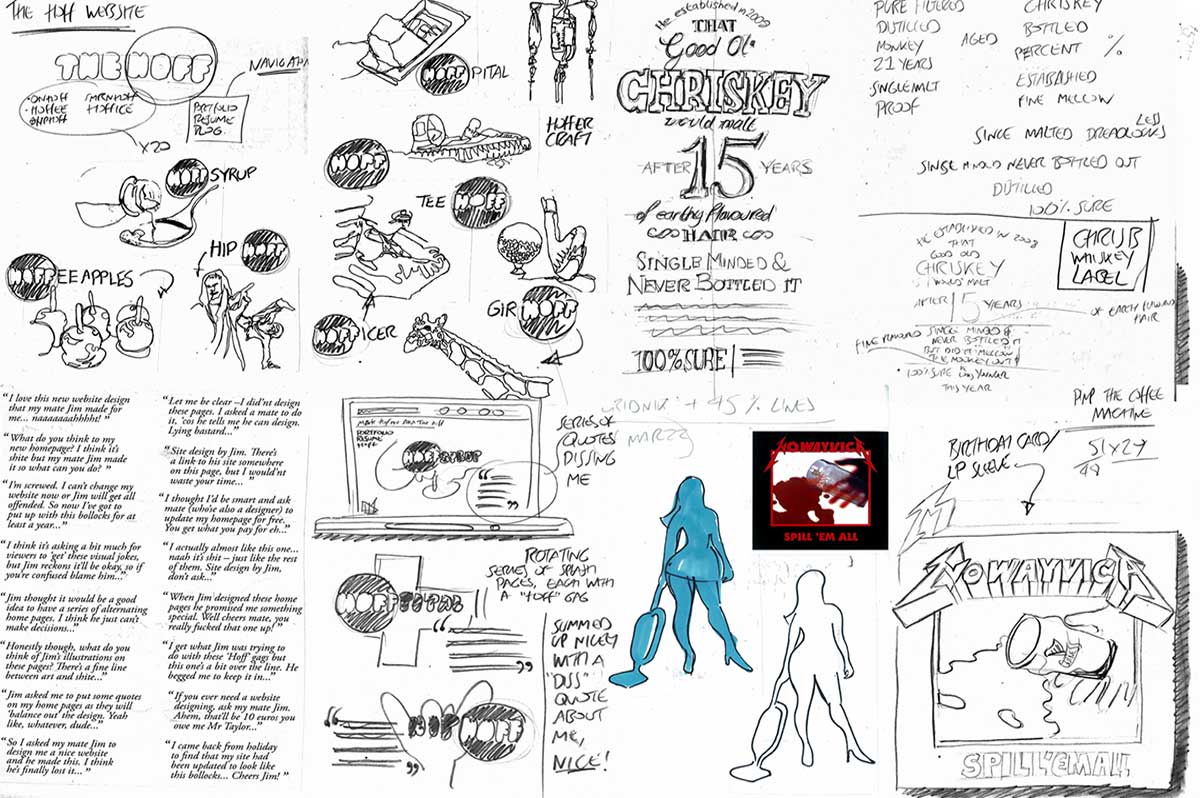 THE HOFF WEBSITE
THE HOFF
NAVIGATION
PORTFOLIO
RESUME
BLOG.
HOFFEE
HOFFICE
x20
HOFF SYRUP
HIP HOFF
HOFFEE APPLES
HOFFPITAL
HOFFER
CRAFT
HOFF
TEE HOFF
HOFFICER
GIRHOFF
He established in 2009
THAT
Good Ol'
CHRISKEY
would malt
AFTER 15 YEARS
of earthy flavoured
HAIR
SINGLE MINDED &
NEVER BOTTLED IT
100% SURE
PURE FILTERED
DISTILLED
MONKEY
21 YEARS
SINGLE MALT
PROOF
AGED
CHRISKEY
BOTTLED
PERCENT %
ESTABLISHED
FINE MELLOW
SINCE MALTED DREADLOCKS
SINGLE MINDED NEVER BOTTLED OUT
DISTILLED
100% SURE
HE ESTABLISHED IN 2008
THAT
GOOD OLD
CHRISKEY
WOULD MALT
AFTER 15 YEARS
OF EARTHY FLAVOURED
HAIR
FINE FLAVOURED
SINGLE MINDED &
NEVER BOTTLED IT
BUT DID IT MELLOW
THE MONKEY OUT!
100% SURE
THIS YEAR
CHRUB
WHISKEY
LABEL
“I love this new website design
that my mate Jim made for
me... naaaaaaahhhht! ”
“What do you think to my
new homepage? I think it's
shite but my mate Jim made
it so what can you do? ”
“I'm screwed. I can't change my
website now or Jim will get all
offended. So now I've got to
put up with this bollocks for at
least a year...”
“I think it's asking a bit much for
viewers to 'get' these visual jokes,
but Jim reckons it'll be okay, so if
you're confused blame him...”
“Jim thought it would be a good
idea to have a series of alternating
home pages. I think he just can't
make decisions...”
“Honestly though, what do you
think of Jim's illustrations on
these pages? There's a fine line
between art and shite...”
“Jim asked me to put some quotes
on my home pages as they will
'balance out' the design. Yeah
like, whatever, dude...”
“So I asked my mate Jim to
design me a nice website
and he made this. I think
he's finally lost it... ”
“Let me be clear –I did'nt design
these pages. I asked a mate to do
it, 'cos he tells me he can design.
Lying bastard...”
“Site design by Jim. There's
a link to his site somewhere
on this page, but I would'nt
waste your time... ”
“I thought I'd be smart and ask
mate (who's also a designer) to
update my homepage for free.
You get what you pay for eh...”
“I actually almost like this one...
naah it's shit – just like the rest
of them. Site design by Jim,
don't ask...”
“When Jim designed these home
pages he promised me something
special. Well cheers mate, you
really fucked that one up! ”
“I get what Jim was trying to
do with these 'Hoff' gags but
this one's a bit over the line. He
begged me to keep it in...”
“If you ever need a website
designing, ask my mate Jim.
Ahem, that'll be 10 euros you
owe me Mr Taylor...”
“I came back from holiday
to find that my site had
been updated to look like
this bollocks... Cheers Jim! ”
PORTFOLIO
RESUME
HOFF SYRUP
SERIES OF
QUOTES
DISSING
ME
HOFFPITAL
ROTATING
SERIES OF SPLASH
PAGES, EACH WITH
A "HOFF" GAG
HIP HOFF
SUMMED
UP NICELY
WITH A
"DISS"
QUOTE
ABOUT
ME,
NICE!
+ 45% LINES
NOWAYVICA
SPILL 'EM ALL
PIMP THE COFFEE
MACHINE
BIRTHDAY CARD/
LP SLEEVE
51x27
NOWAYVICA
SPILL 'EM ALL